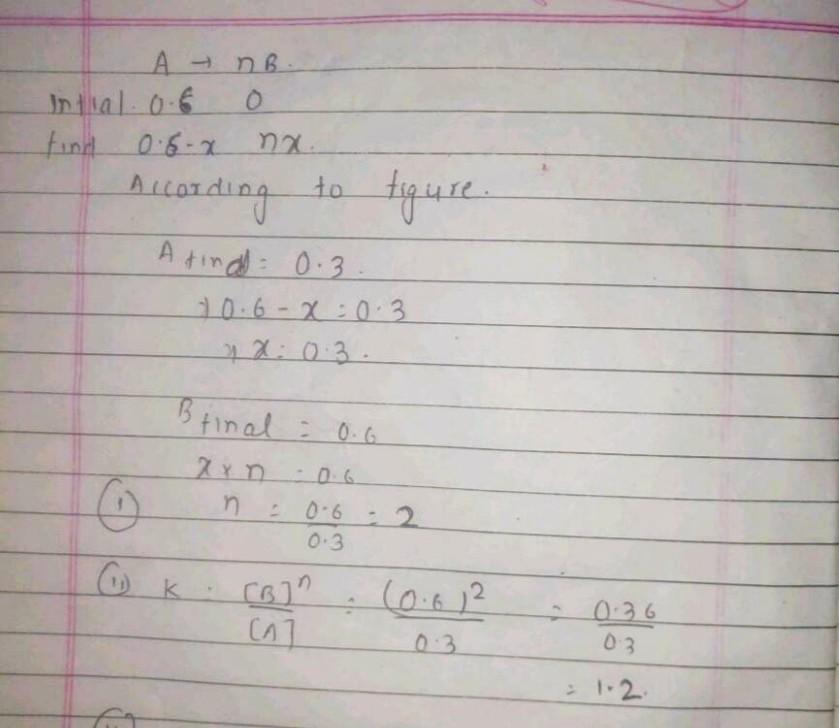 A → nB.
Intial. 0.6 0
find 0.6-x nx.
According to figure.
A find = 0.3.
⇒ 0.6 - x = 0.3
⇒ x = 0.3.
B final = 0.6
x × n = 0.6
(i) n = 0.6/0.3 = 2
(ii) K = [B]ⁿ/[A] = (0.6)²/0.3 = 0.36/0.3
= 1.2.